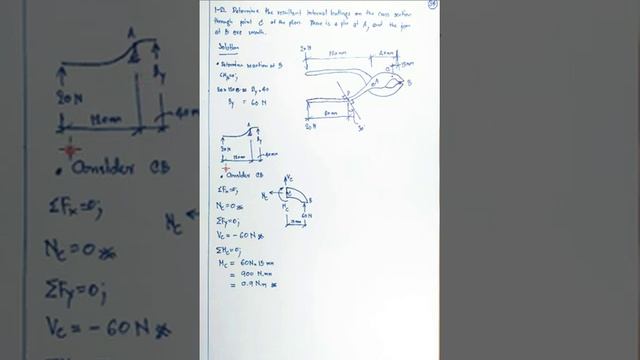 1-12. Determine the resultant internal loadings on the cross section
through point C of the pliers. There is a pin at A, and the jaws
at B are smooth.
Solution
• Determine reaction at B
ΣM_A=0;
By = 60 N
20N
120mm
40mm
15mm
C
A
B
D
80mm
20N
30°
A
By
20N
120mm
40mm
• Consider CB
ΣFx=0;
Nc=0
ΣFy=0;
Vc= -60N
ΣMc=0;
Mc = 60N × 15 mm
= 900 N.mm
= 0.9 N.m
Vc
Nc
Mc
B
60N
A
By
20N
120mm
40mm
• Consider CB
ΣFx=0;
Nc=0
ΣFy=0;
Vc= -60N